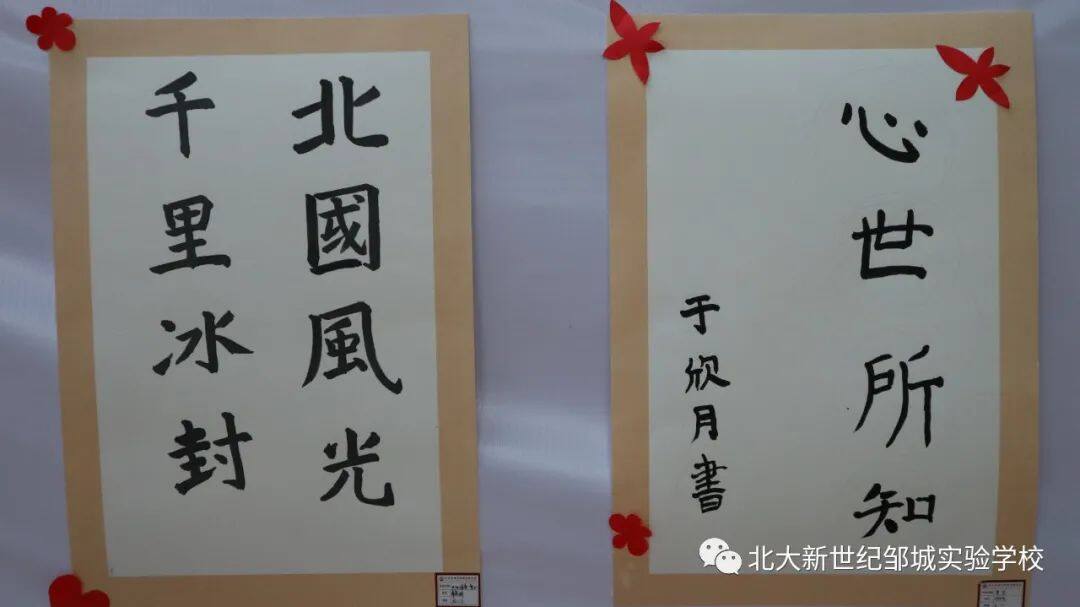 北國風光
千里冰封
心世所知
于欣月書
北大新世纪邹城实验学校